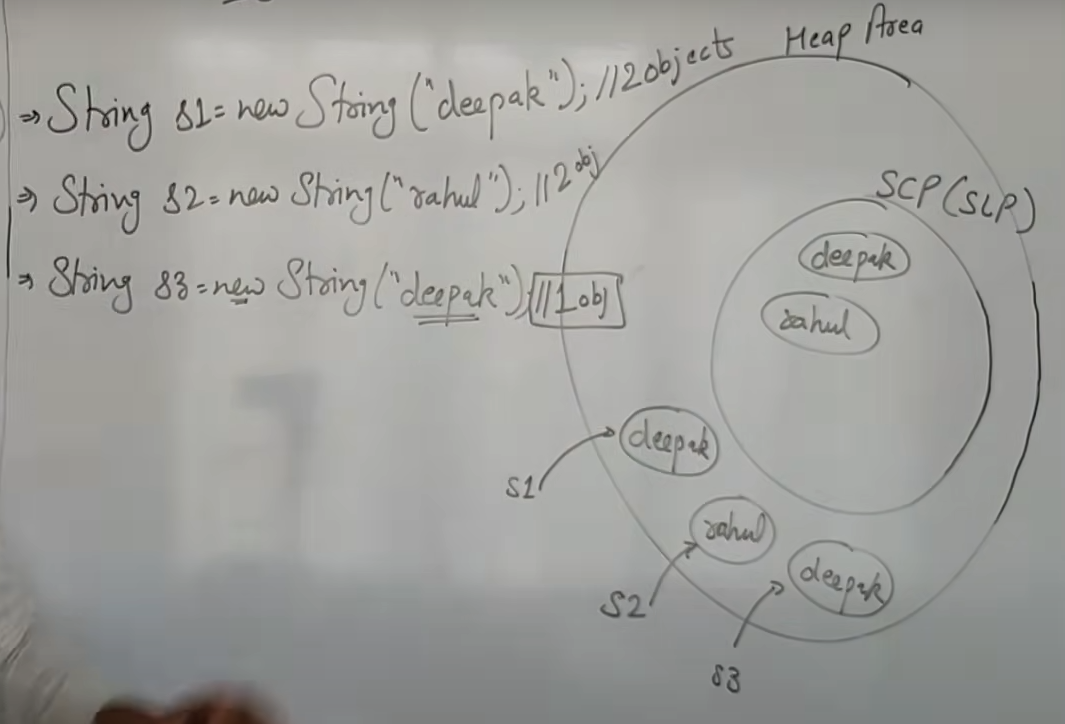 ⇒ String s1 = new String("deepak"); //2 objects
⇒ String s2 = new String("rahul"); //2 obj
⇒ String s3 = new String("deepak"); //1 obj
Heap Area
SCP (SLP)
deepak
rahul
deepak
s1
rahul
s2
deepak
s3